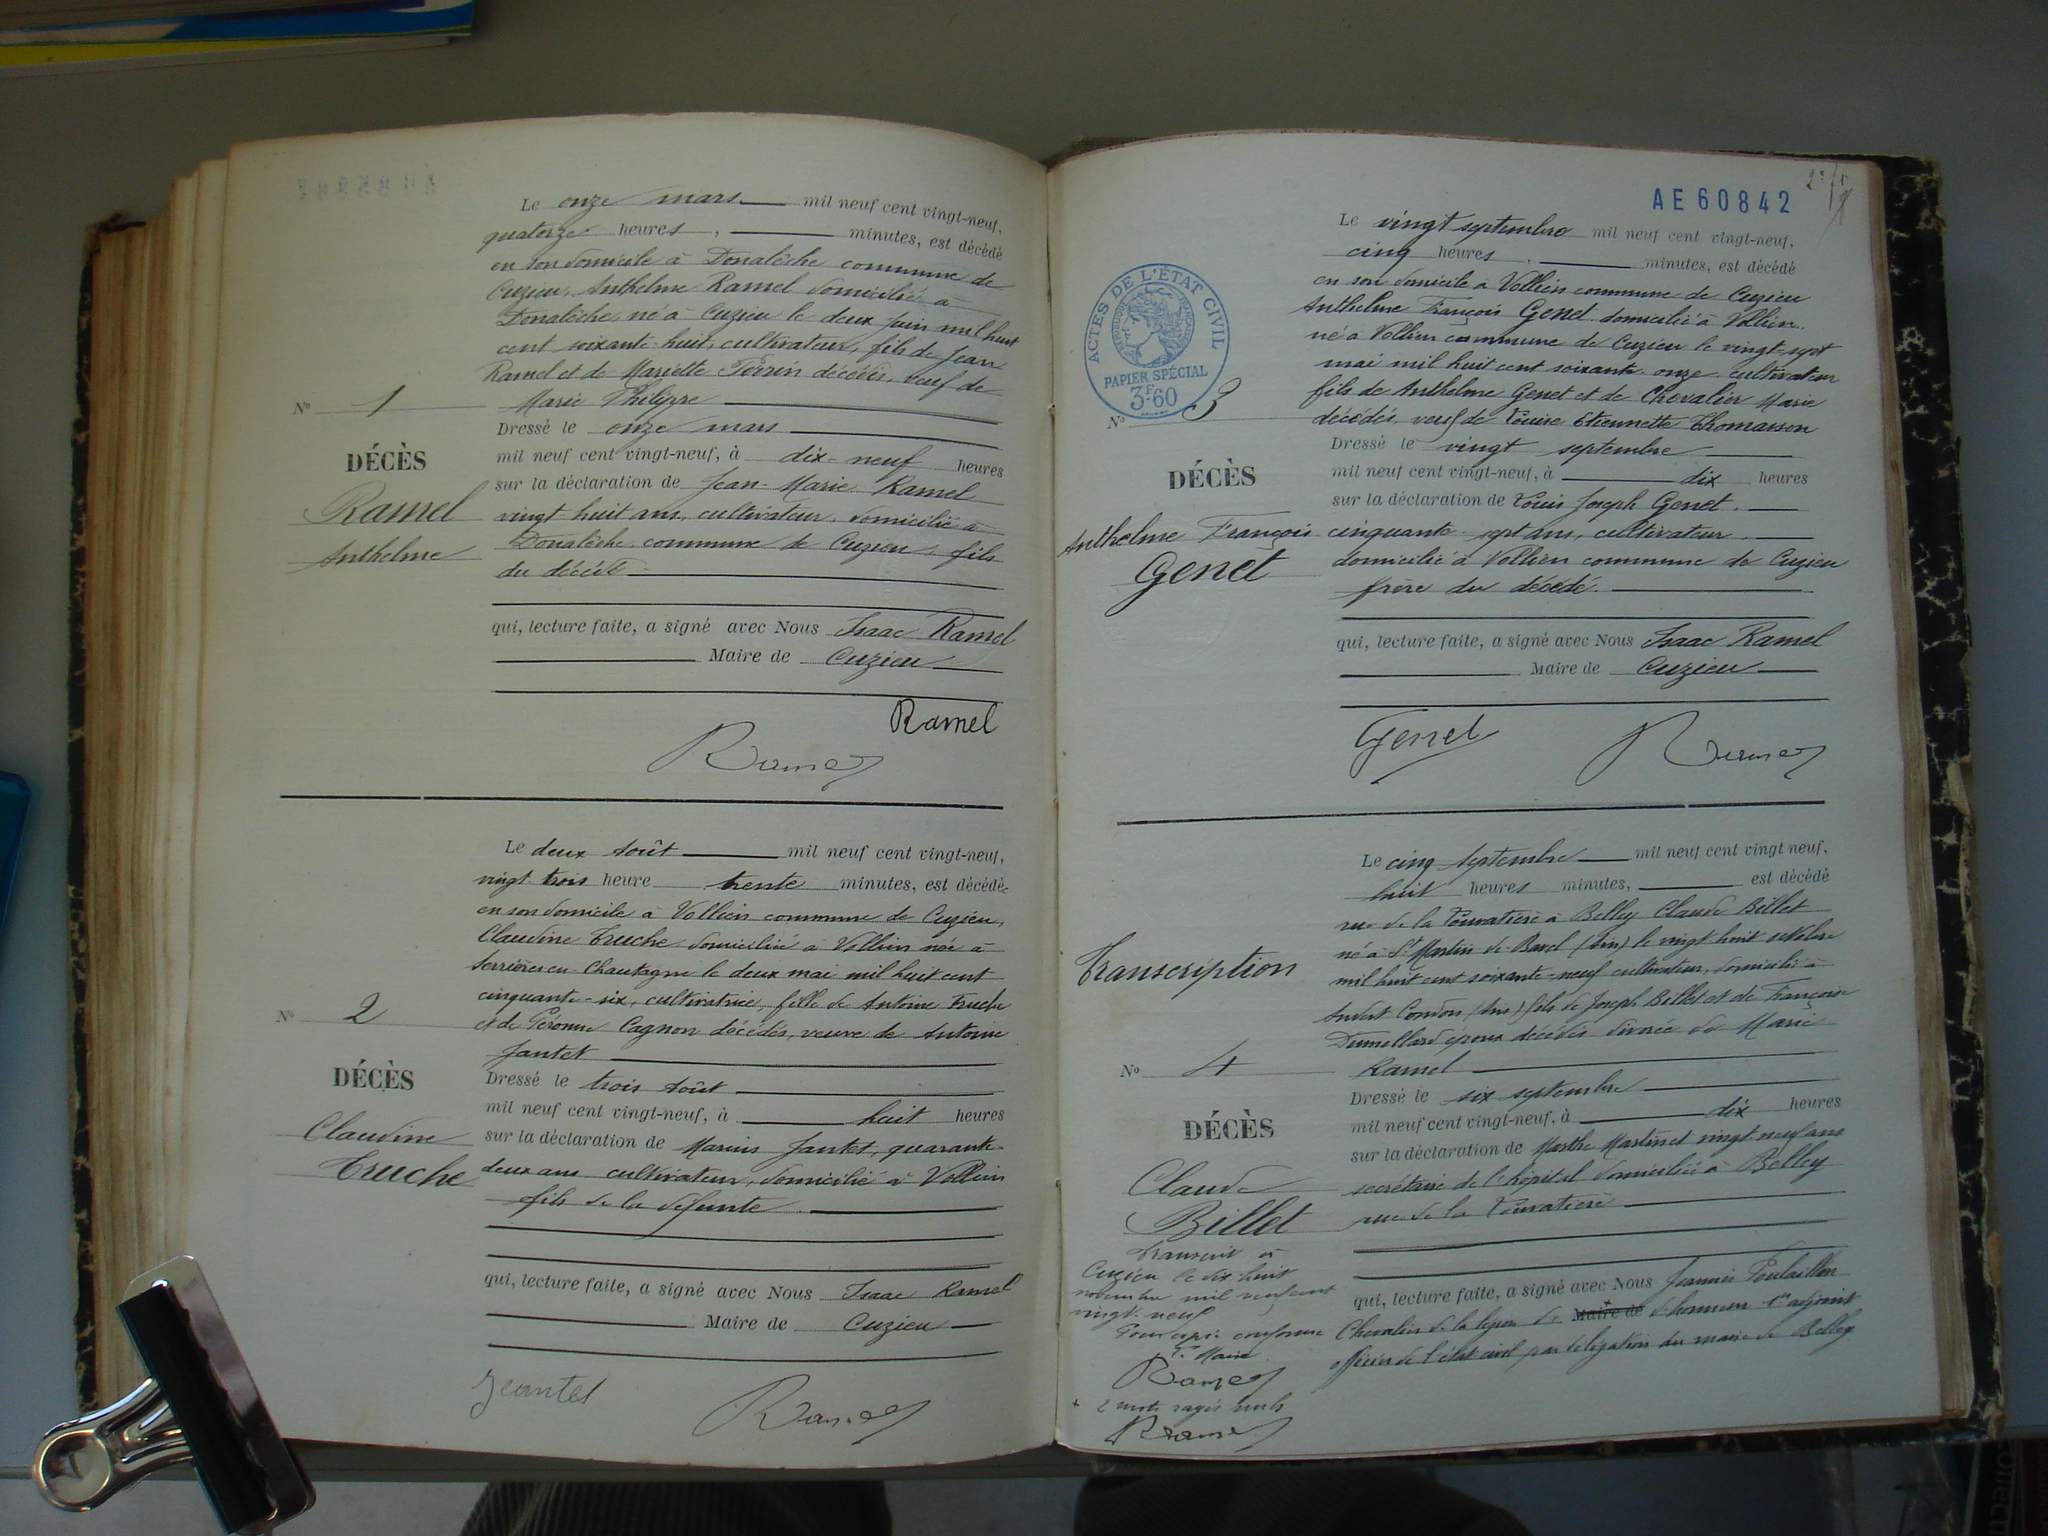 Le onze mars mil neuf cent vingt-neuf,
quatorze heures, minutes, est décédé
en son domicile à Donalèche commune de
Cuzieu, Anthelme Ramel domicilié à
Donalèche, né à Cuzieu le deux juin mil huit
cent soixante-huit, cultivateur, fils de Jean
Ramel et de Mariette Perrin décédés, veuf de
Marie Philippe
Nº 1
DÉCÈS
Ramel
Anthelme
Dressé le onze mars
mil neuf cent vingt-neuf, à dix-neuf heures
sur la déclaration de Jean-Marie Ramel
vingt-huit ans, cultivateur, domicilié à
Donalèche commune de Cuzieu, fils
du décédé
qui, lecture faite, a signé avec Nous Isaac Ramel
Maire de Cuzieu
Ramel
Ramel
Le deux Août mil neuf cent vingt-neuf,
vingt trois heure trente minutes, est décédée
en son domicile à Vollien commune de Cuzieu,
Claudine Truche domiciliée à Vollien née à
Serrières en Chautagne le deux mai mil huit cent
cinquante-six, cultivatrice, fille de Antoine Truche
et de Péronne Cagnon décédés, veuve de Antoine
Jantet
Nº 2
DÉCÈS
Claudine
Truche
Dressé le trois Août
mil neuf cent vingt-neuf, à huit heures
sur la déclaration de Marius Jantet, quarante
deux ans cultivateur, domicilié à Vollien
fils de la défunte
qui, lecture faite, a signé avec Nous Isaac Ramel
Maire de Cuzieu
Jeantet
Ramel
AE 60842
ACTES DE L'ÉTAT CIVIL
RÉPUBLIQUE FRANÇAISE
PAPIER SPÉCIAL
3F60
Le vingt septembre mil neuf cent vingt-neuf,
cinq heures, minutes, est décédé
en son domicile à Vollien commune de Cuzieu
Anthelme François Genet domicilié à Vollien
né à Vollien commune de Cuzieu le vingt-sept
mai mil huit cent soixante-onze cultivateur
fils de Anthelme Genet et de Chevalier Marie
décédés, veuf de Louise Etiennette Thomasson
Nº 3
DÉCÈS
Anthelme François
Genet
Dressé le vingt septembre
mil neuf cent vingt-neuf, à dix heures
sur la déclaration de Louis Joseph Genet,
cinquante-sept ans, cultivateur,
domicilié à Vollien commune de Cuzieu
frère du décédé.
qui, lecture faite, a signé avec Nous Isaac Ramel
Maire de Cuzieu
Genet
Ramel
Le cinq septembre mil neuf cent vingt neuf,
huit heures minutes, est décédé
rue de la à Belley Claude Billet
né à St Martin de Bavel (Ain) le vingt huit octobre
mil huit cent soixante-neuf cultivateur, domicilié à
Andert Condon (Ain) fils de Joseph Billet et de Françoise
Dumollard époux décédés divorcé de Marie
Ramel
Transcription
Nº 4
DÉCÈS
Claude
Billet
Dressé le six septembre
mil neuf cent vingt-neuf, à dix heures
sur la déclaration de Marthe Martinet vingt neuf ans
secrétaire de l'hôpital domiciliée à Belley
rue de la
qui, lecture faite, a signé avec Nous
Chevalier de la légion de Maire de d'honneur 1er adjoint
officier de l'état civil par délégation du maire de Belley
Transcrit à
Cuzieu le dix huit
novembre mil neuf cent
vingt-neuf
Pour copie conforme
Maire
Ramel
+ 2 mots rayés nuls
Ramel